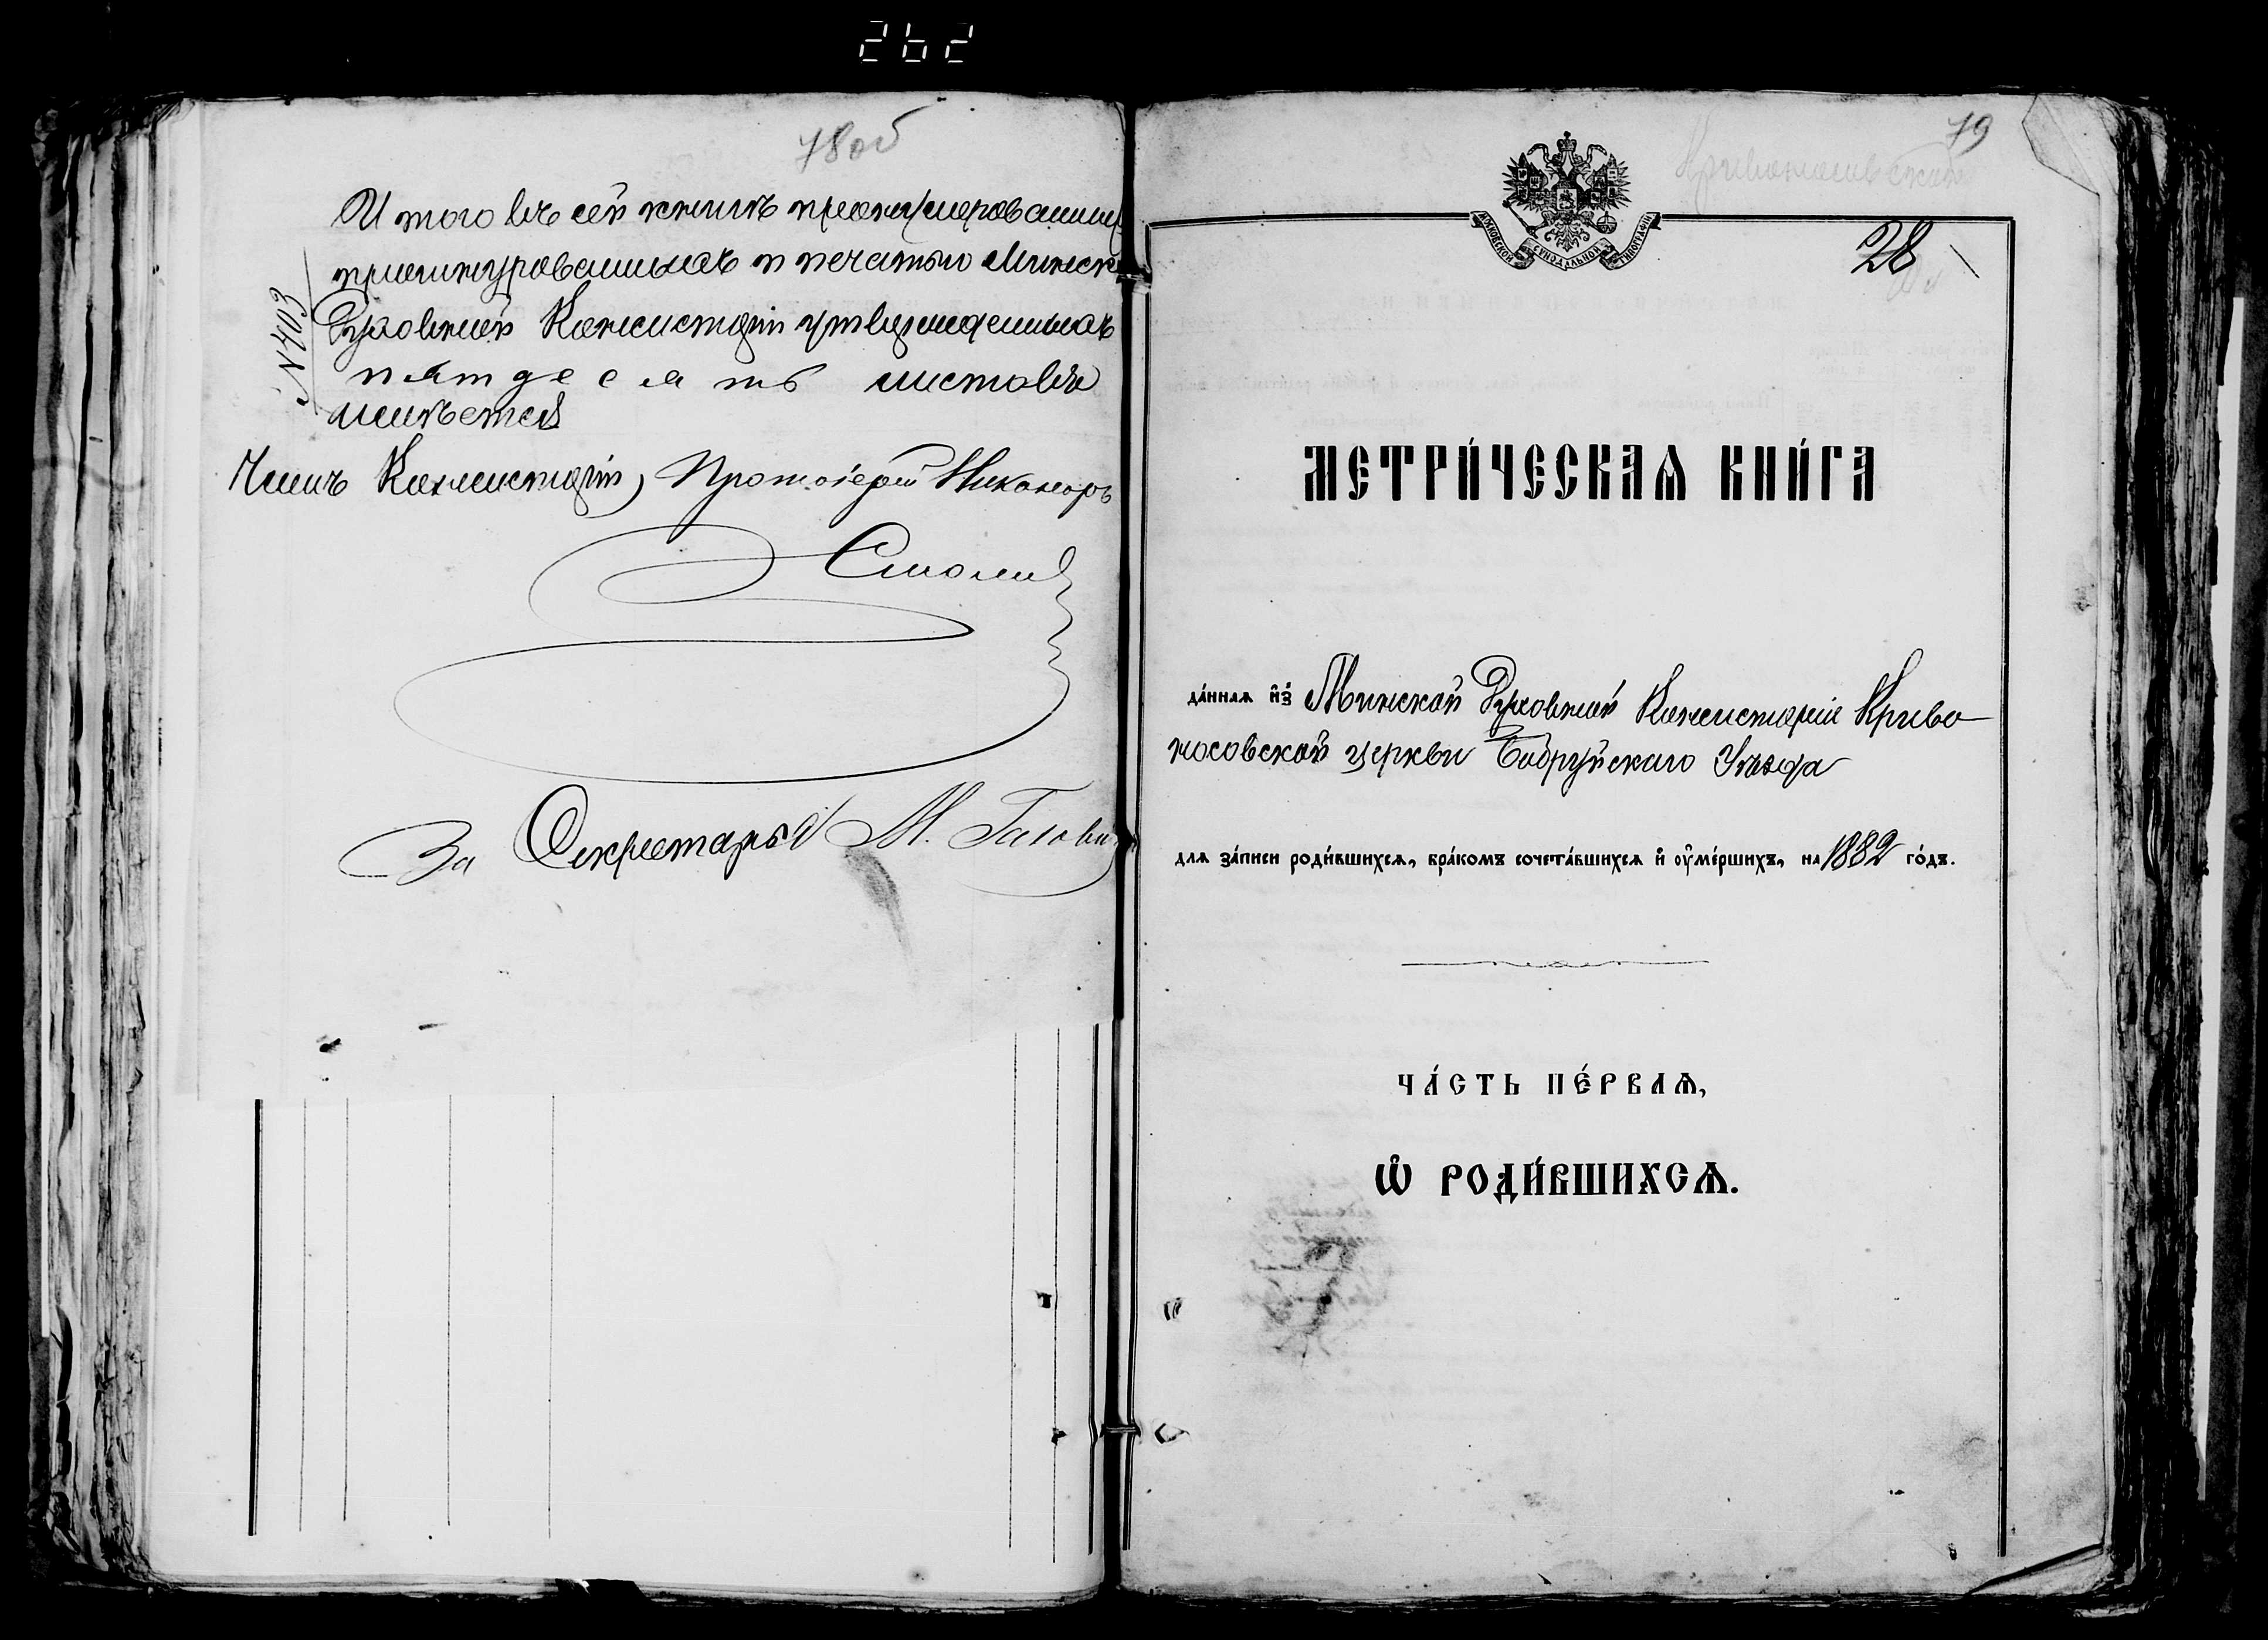 262
78 об
Итого въ сей книгѣ пронумерованных
прошнурованныхъ и печатью Минск
Духовной Консисторіи утвержденныхъ
пятдесятъ листовъ
имѣется
№ 403
Членъ Консисторіи, Протоіерей Никаноръ
Смолич
За Секретаря М. Гахови
79
28
МОСКОВСКОЙ СѴНОДАЛЬНОЙ ТИПОГРАФІИ
МЕТРИ́ЧЕСКАѦ КНИ́ГА
да́нная и҆з̾ Минской Духовной Консисторіи Криво
носовской церкви Бобруйскаго Уѣзда
для за́писи роди́вшихся, бра́комъ сочета́вшихся и҆ оу҆ме́ршихъ, на 1882 го́дъ.
ЧА́СТЬ ПЕ́РВАѦ,
Ѡ҆ РОДИ́ВШИХСѦ.